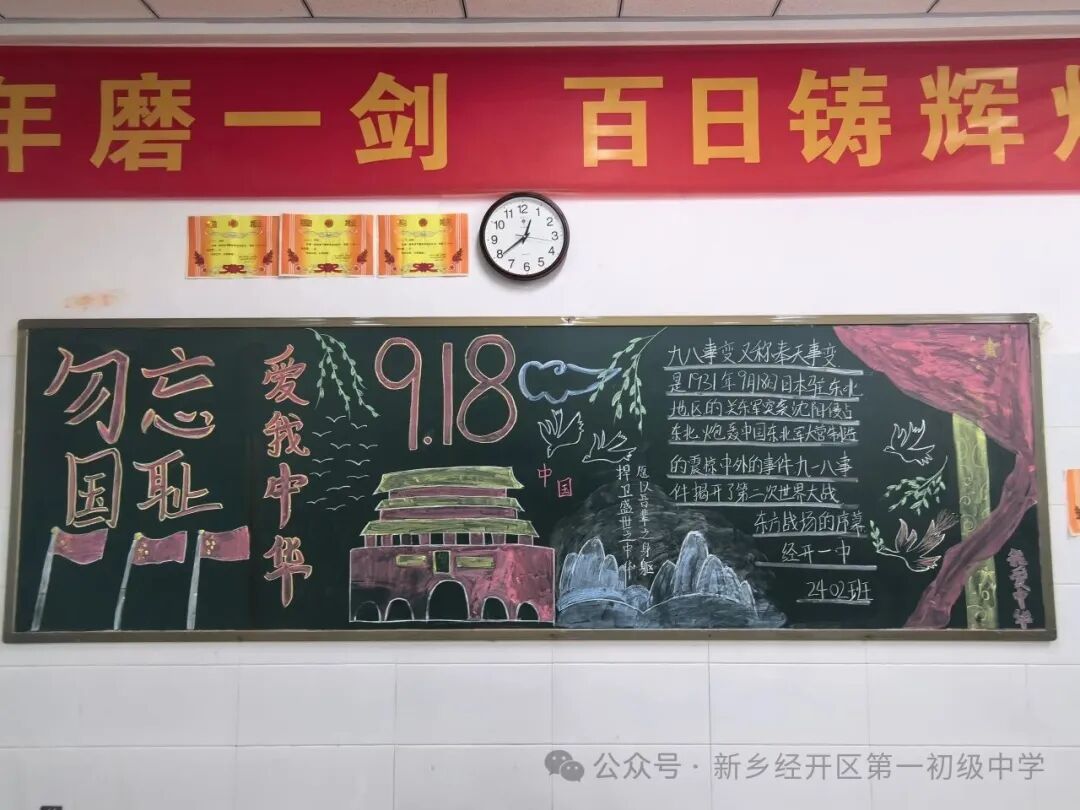 年磨一剑 百日铸辉
12
1
2
3
4
5
6
7
8
9
10
11
勿忘
国耻
爱我中华
9.18
中国
愿以吾辈之身躯
捍卫盛世之中华
九八事变又称奉天事变
是1931年9月18日日本驻东北
地区的关东军突袭沈阳侵占
东北炮轰中国东北军大营制造
的震惊中外的事件九一八事
件揭开了第二次世界大战
东方战场的序幕
经开一中
2402班
我爱中华
公众号·新乡经开区第一初级中学